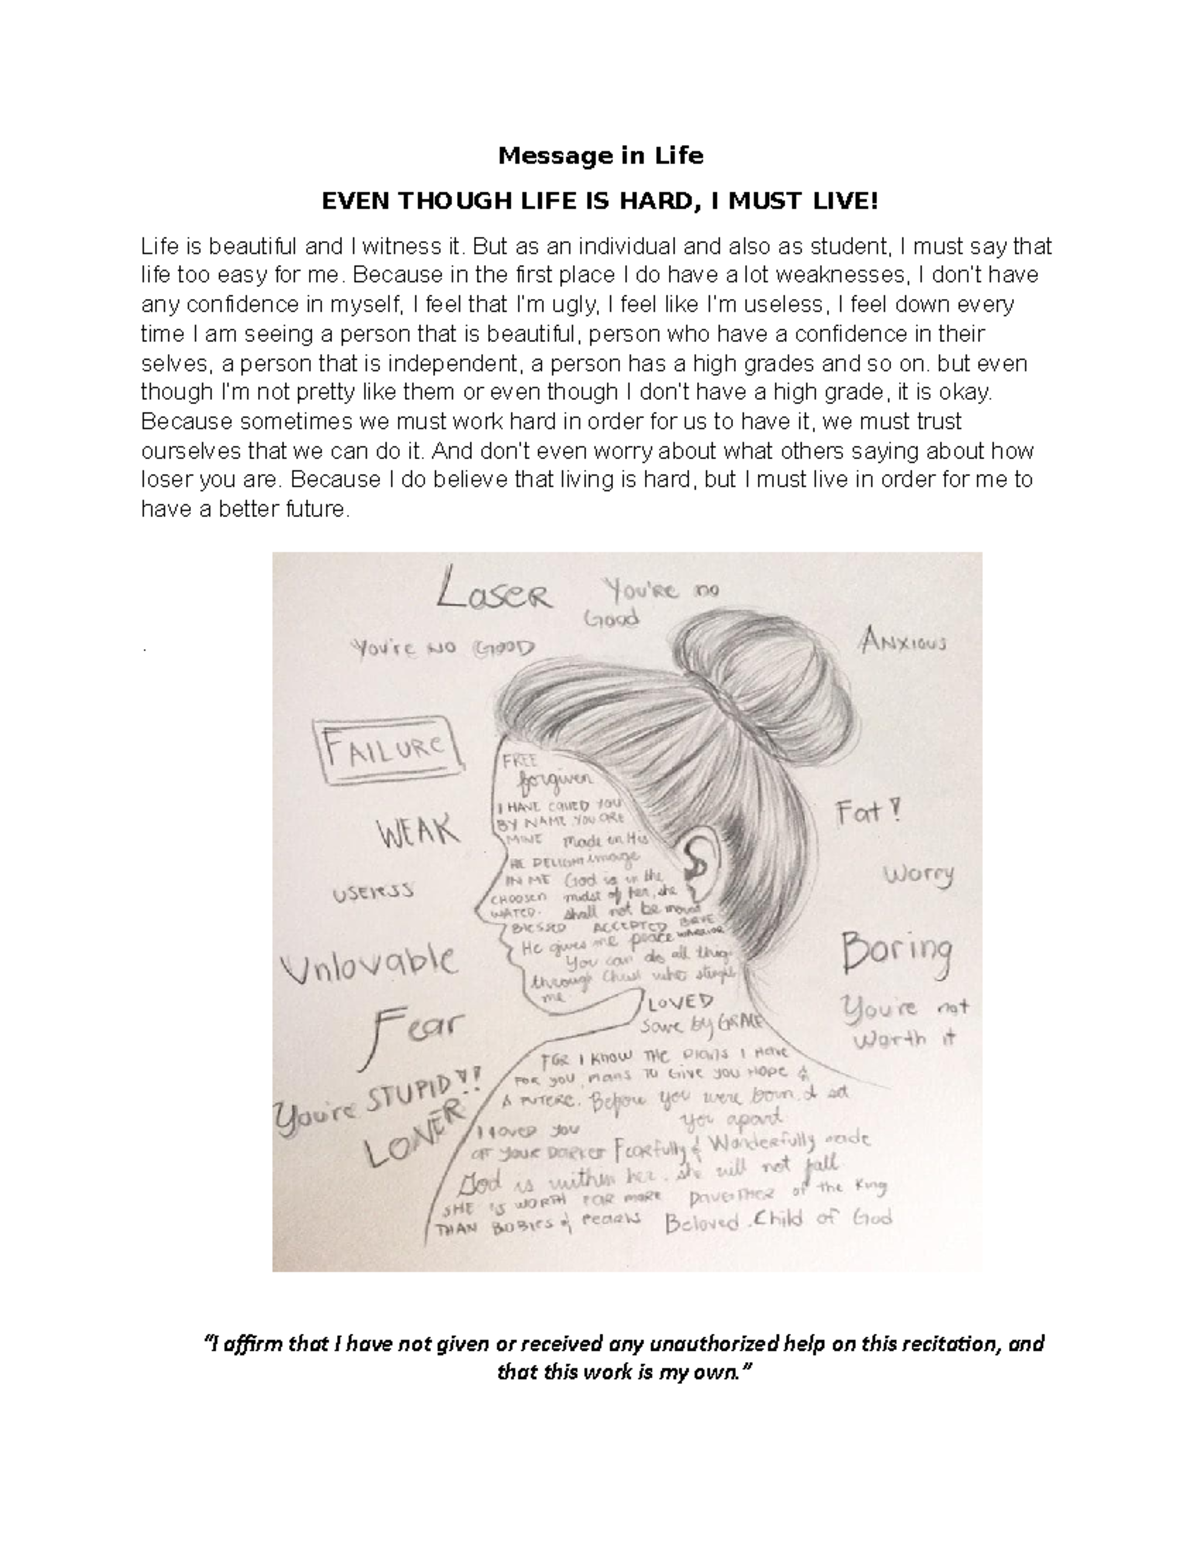 Message in Life
EVEN THOUGH LIFE IS HARD, I MUST LIVE!
Life is beautiful and I witness it. But as an individual and also as student, I must say that
life too easy for me. Because in the first place I do have a lot weaknesses, I don't have
any confidence in myself, I feel that I'm ugly, I feel like I'm useless, I feel down every
time I am seeing a person that is beautiful, person who have a confidence in their
selves, a person that is independent, a person has a high grades and so on. but even
though I'm not pretty like them or even though I don't have a high grade, it is okay.
Because sometimes we must work hard in order for us to have it, we must trust
ourselves that we can do it. And don't even worry about what others saying about how
loser you are. Because I do believe that living is hard, but I must live in order for me to
have a better future.
LOSER
You're no
Good
You're NO GOOD
ANXIOUS
.
FAILURE
FREE
forgiven
I HAVE CALLED YOU
BY NAME YOU ARE
MINE made in His
HE DELIGHT image
IN ME God is in the
CHOOSEN midst of her, she
WANTED. shall not be moved
BLESSED ACCEPTED
He gives me peace WARRIOR
You can do all
through Christ who
me
Fat!
WEAK
Worry
USELESS
Boring
Unlovable
LOVED
You're not
Worth it
save by GRACE
Fear
FOR I KNOW THE PLANS I HAVE
FOR YOU, PLANS TO GIVE YOU HOPE &
A FUTURE. Before you were born, I set
you apart
You're STUPID!!
LONER
I loved you
AT YOUR DARKEST Fearfully & Wonderfully made
God is within her. she will not fall
SHE IS WORTH FAR MORE DAUGTHER of the King
THAN RUBIES & Pearls Beloved. Child of God
"I affirm that I have not given or received any unauthorized help on this recitation, and
that this work is my own."